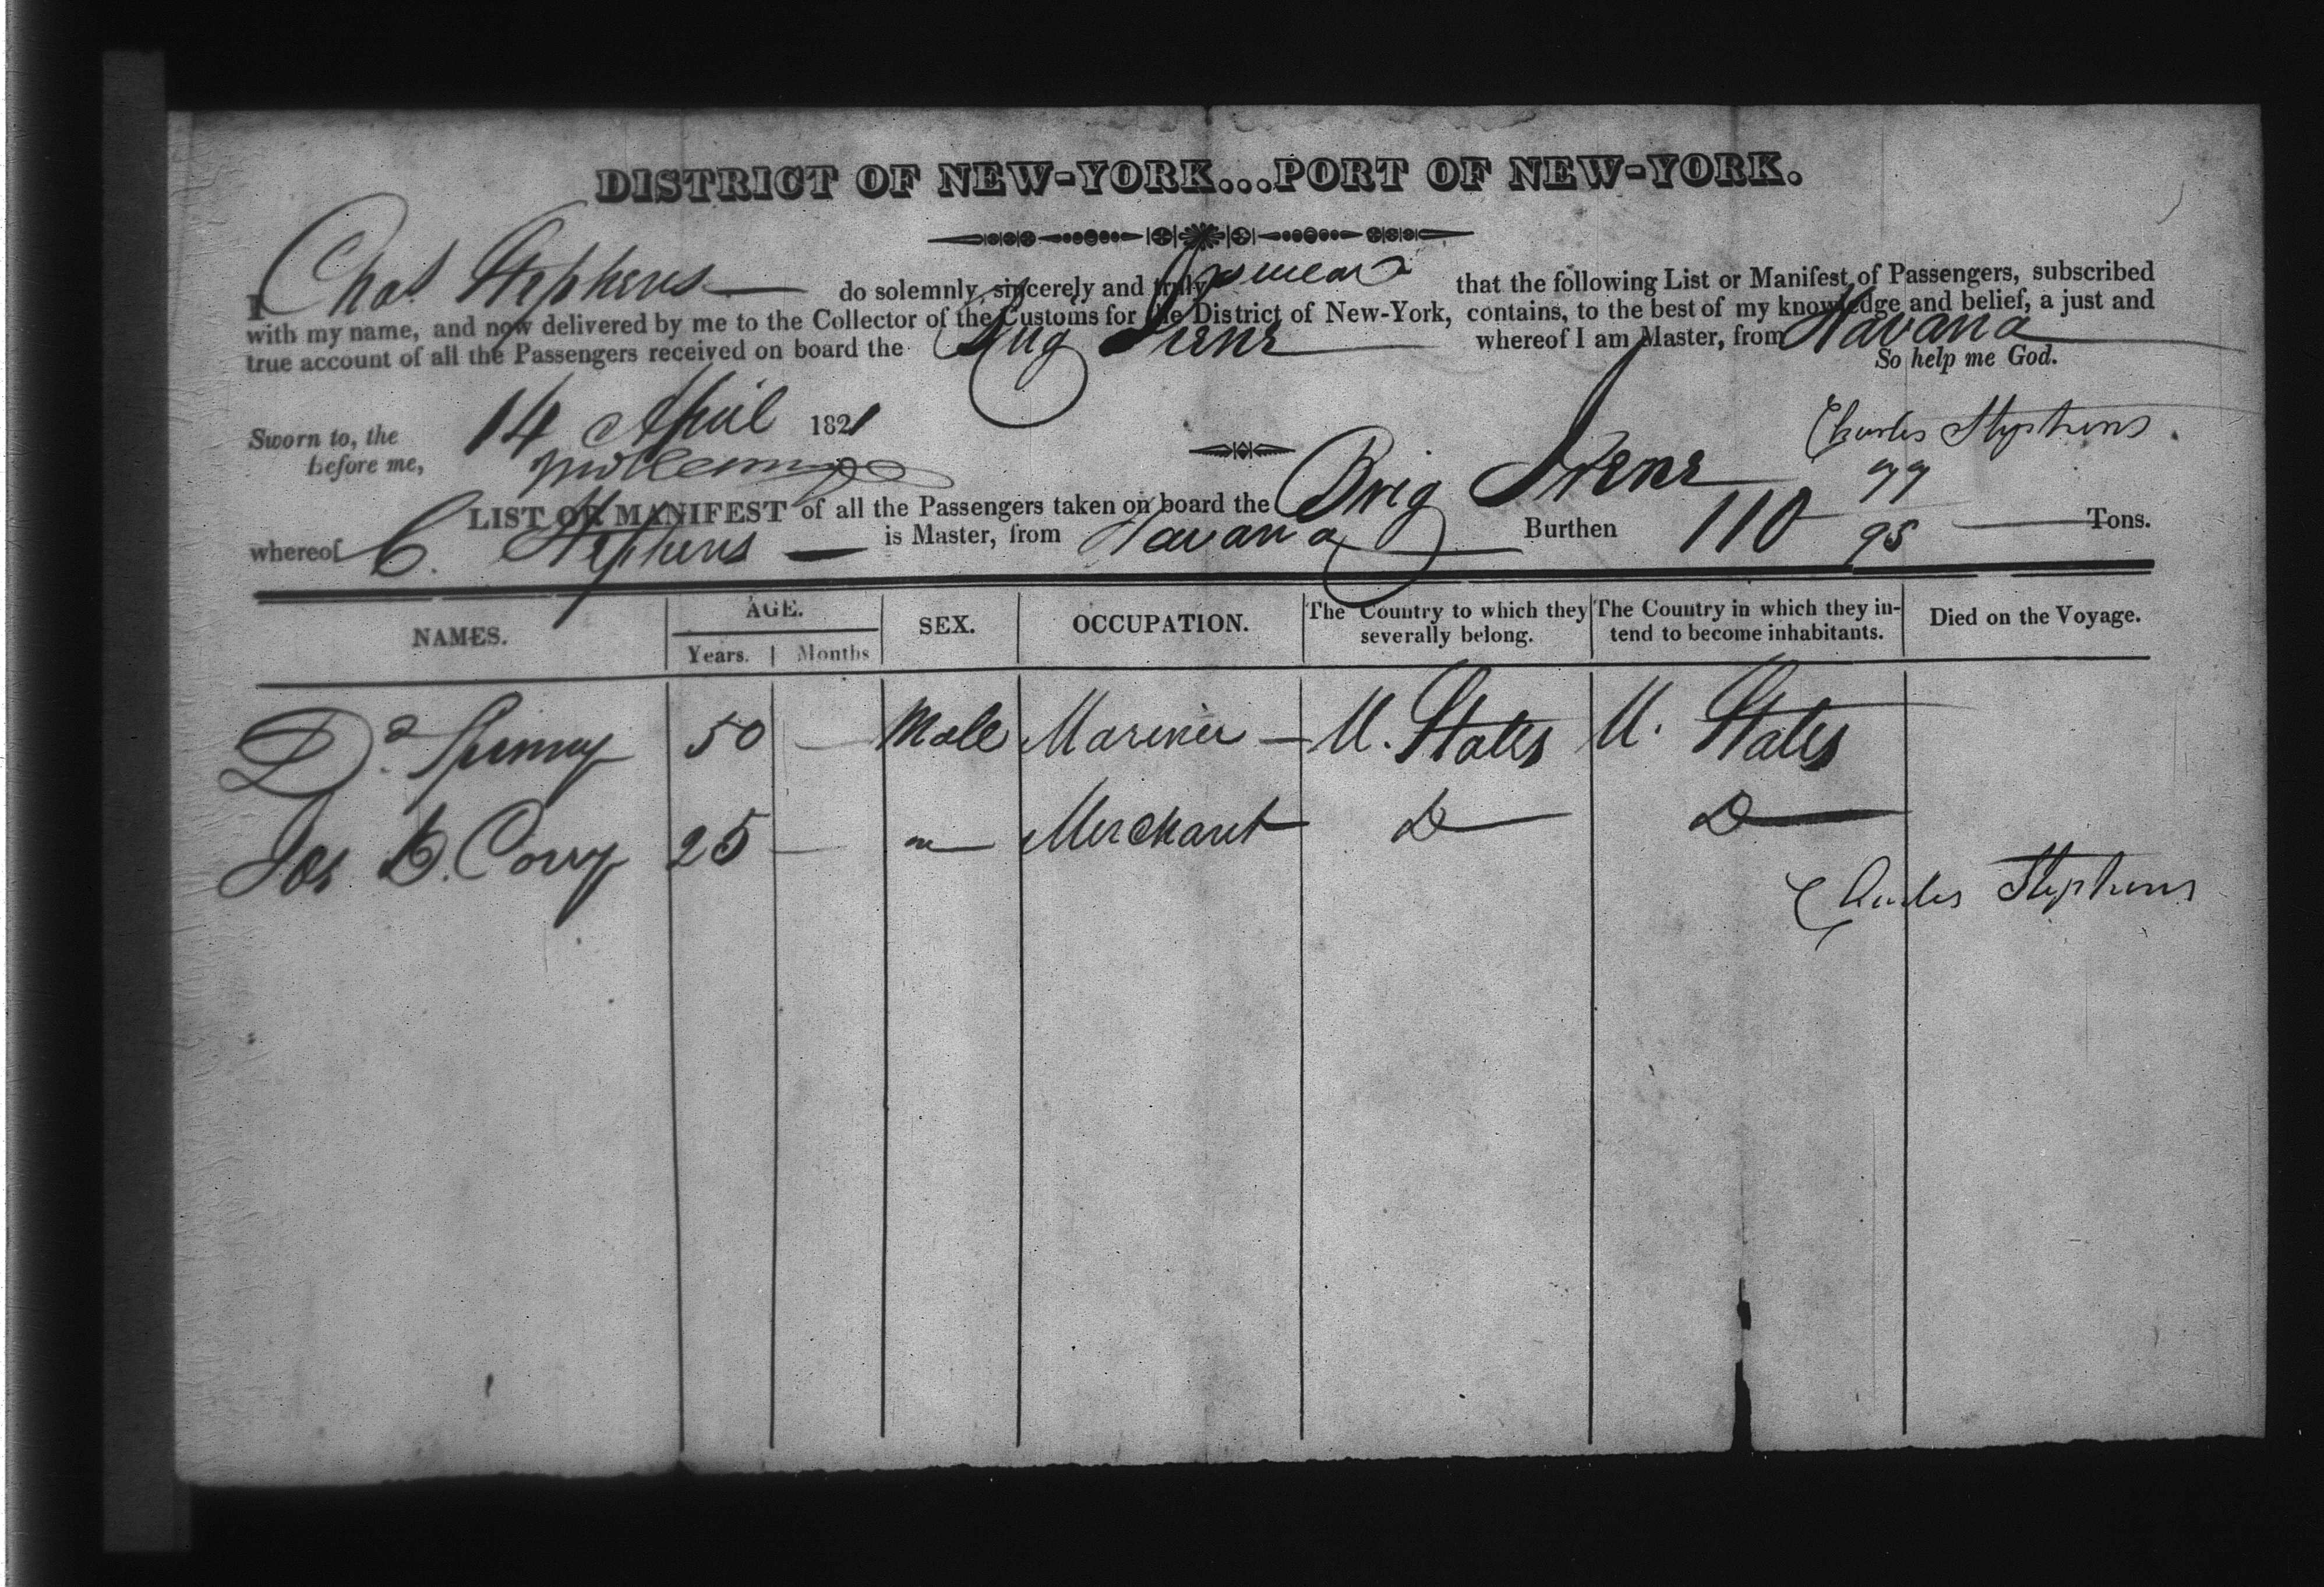 DISTRICT OF NEW-YORK...PORT OF NEW-YORK.
I Chas. Stephens do solemnly, sincerely and truly swear that the following List or Manifest of Passengers, subscribed
with my name, and now delivered by me to the Collector of the Customs for the District of New-York, contains, to the best of my knowledge and belief, a just and
true account of all the Passengers received on board the Brig Irene whereof I am Master, from Havana
So help me God.
Sworn to, the 14 April 1821
Charles Stephens
before me,
LIST OR MANIFEST of all the Passengers taken on board the Brig Irene
whereof C. Stephens is Master, from Havana Burthen 110 Tons.
NAMES. AGE. SEX. OCCUPATION. The Country to which they severally belong. The Country in which they intend to become inhabitants. Died on the Voyage.
Years. Months
Dd. Spinney 50 — Male Mariner — U. States U. States
Jos B. Corry 25 — " Merchant Do Do
Charles Stephens